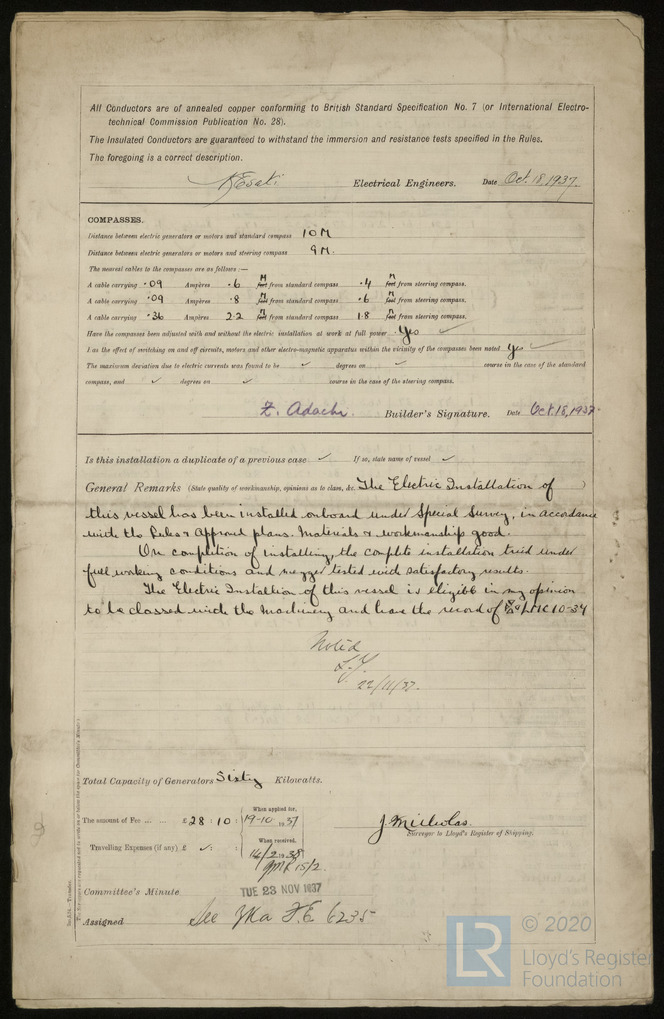 All Conductors are of annealed copper conforming to British Standard Specification No. 7 (or International Electro-
technical Commission Publication No. 28).
The Insulated Conductors are guaranteed to withstand the immersion and resistance tests specified in the Rules.
The foregoing is a correct description.
Electrical Engineers. Date Oct. 18, 1937.
COMPASSES.
Distance between electric generators or motors and standard compass 10 M
Distance between electric generators or motors and steering compass 9 M.
The nearest cables to the compasses are as follows:—
A cable carrying .09 Ampères .6 M feet from standard compass .4 M feet from steering compass.
A cable carrying .09 Ampères .8 M feet from standard compass .6 M feet from steering compass.
A cable carrying .36 Ampères 2.2 M feet from standard compass 1.8 M feet from steering compass.
Have the compasses been adjusted with and without the electric installation at work at full power Yes ✓
Has the effect of switching on and off circuits, motors and other electro-magnetic apparatus within the vicinity of the compasses been noted Yes ✓
The maximum deviation due to electric currents was found to be ✓ degrees on ✓ course in the case of the standard
compass, and ✓ degrees on ✓ course in the case of the steering compass.
Z. Adachi. Builder's Signature. Date Oct. 18, 1937.
Is this installation a duplicate of a previous case ✓ If so, state name of vessel ✓
General Remarks (State quality of workmanship, opinions as to class, &c. The Electric Installation of )
this vessel has been installed onboard under Special Survey, in accordance
with the Rules & Approved plans. Materials & workmanship good.
On completion of installing, the complete installation tried under
full working conditions and megger tested with satisfactory results.
The Electric Installation of this vessel is eligible in my opinion
to be classed with the Machinery and have the record of LMC 10-37
Noted
22/11/37.
Total Capacity of Generators Sixty Kilowatts.
The amount of Fee ... ... £28 : 10 :
When applied for,
19-10 1937
Travelling Expenses (if any) £ ✓ : :
When received,
14/2 1938
15/2.
J. Nicholas.
Surveyor to Lloyd's Register of Shipping.
Committee's Minute.
TUE 23 NOV 1937
Assigned See F.E. 6235
© 2020
LR
Lloyd's Register
Foundation